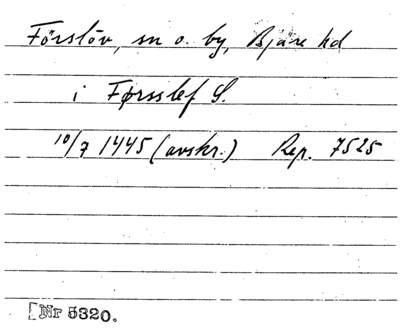 Förslöv, sn o. by, Bjäre hd
i Førsslef S.
10/7 1445 (avskr.) Rep. 7525
[Nr 5320.